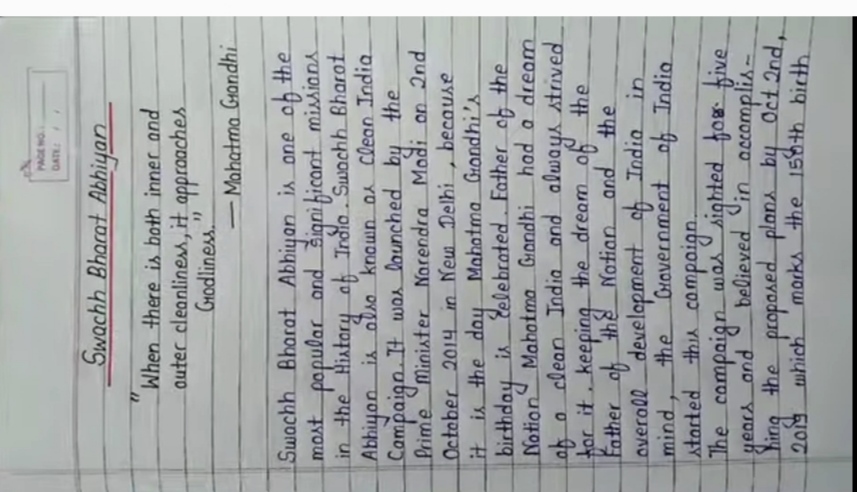 PAGE NO.:
DATE: / /
Swachh Bharat Abhiyan
"When there is both inner and
outer cleanliness, it approaches
Godliness."
— Mahatma Gandhi
Swachh Bharat Abhiyan is one of the
most popular and significant missions
in the History of India. Swachh Bharat
Abhiyan is also known as clean India
Campaign. It was launched by the
Prime Minister Narendra Modi on 2nd
October 2014 in New Delhi, because
it is the day Mahatma Gandhi's
birthday is celebrated. Father of the
Nation Mahatma Gandhi had a dream
of a clean India and always strived
for it. keeping the dream of the
Father of the Nation and the
overall development of India in
mind, the Government of India
started this campaign.
The campaign was sighted for five
years and believed in accomplis-
hing the proposed plans by Oct 2nd,
2019 which marks the 150th birth